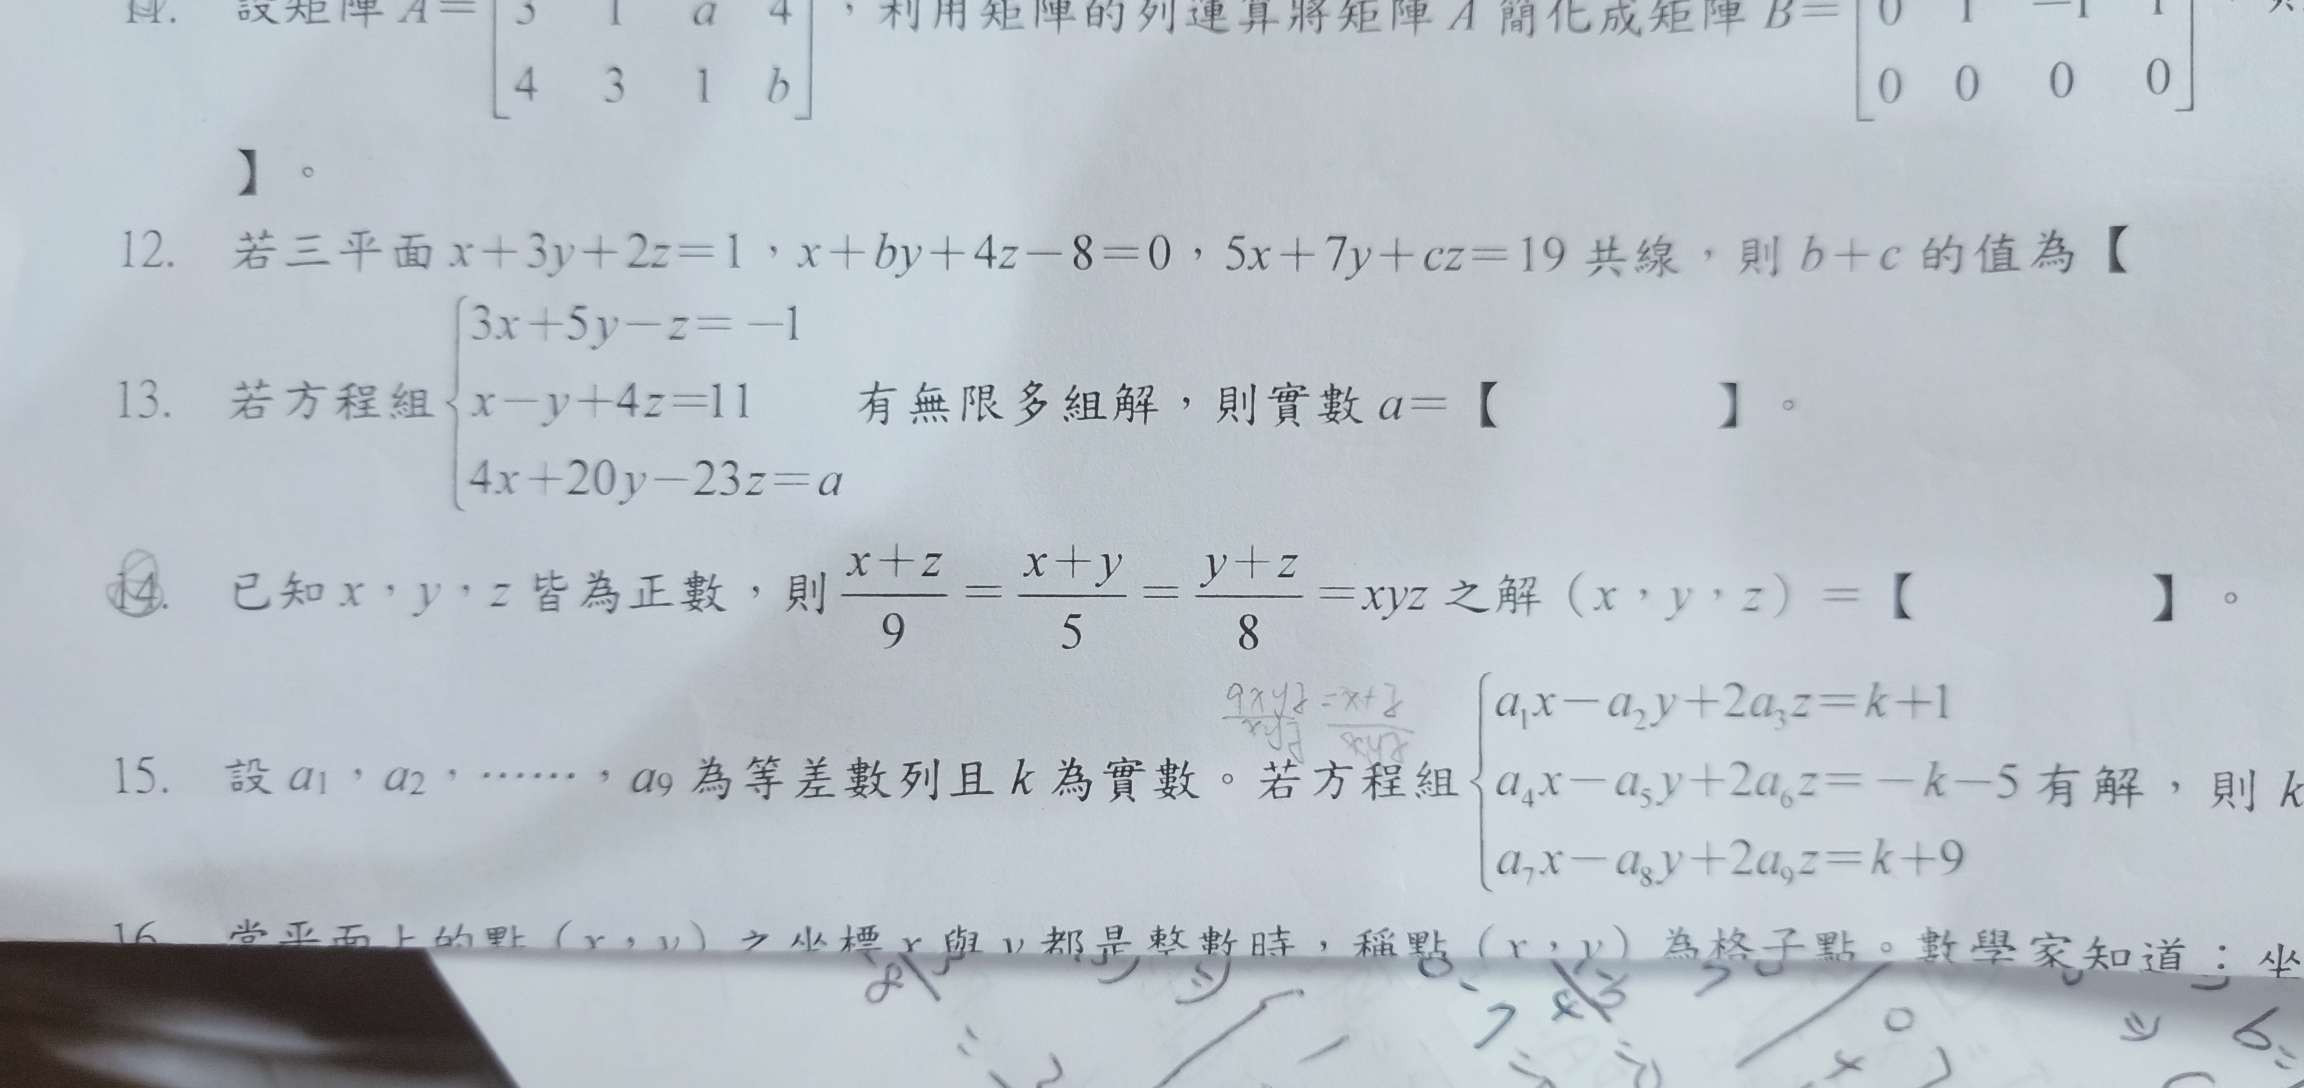 11. 設矩陣 A= 3 1 a 4 ,利用矩陣的列運算將矩陣 A 簡化成矩陣 B= 0 1 −1 1
4 3 1 b 0 0 0 0
】。
12. 若三平面 x+3y+2z=1,x+by+4z−8=0,5x+7y+cz=19 共線,則 b+c 的值為【
3x+5y−z=−1
13. 若方程組 x−y+4z=11 有無限多組解,則實數 a=【 】。
4x+20y−23z=a
14. 已知 x,y,z 皆為正數,則 (x+z)/9 = (x+y)/5 = (y+z)/8 =xyz 之解(x,y,z)=【 】。
a₁x−a₂y+2a₃z=k+1
15. 設 a₁,a₂,……,a₉ 為等差數列且 k 為實數。若方程組 a₄x−a₅y+2a₆z=−k−5 有解,則 k
a₇x−a₈y+2a₉z=k+9
16. 當平面上的點(x,y)之坐標 x 與 y 都是整數時,稱點(x,y)為格子點。數學家知道:坐